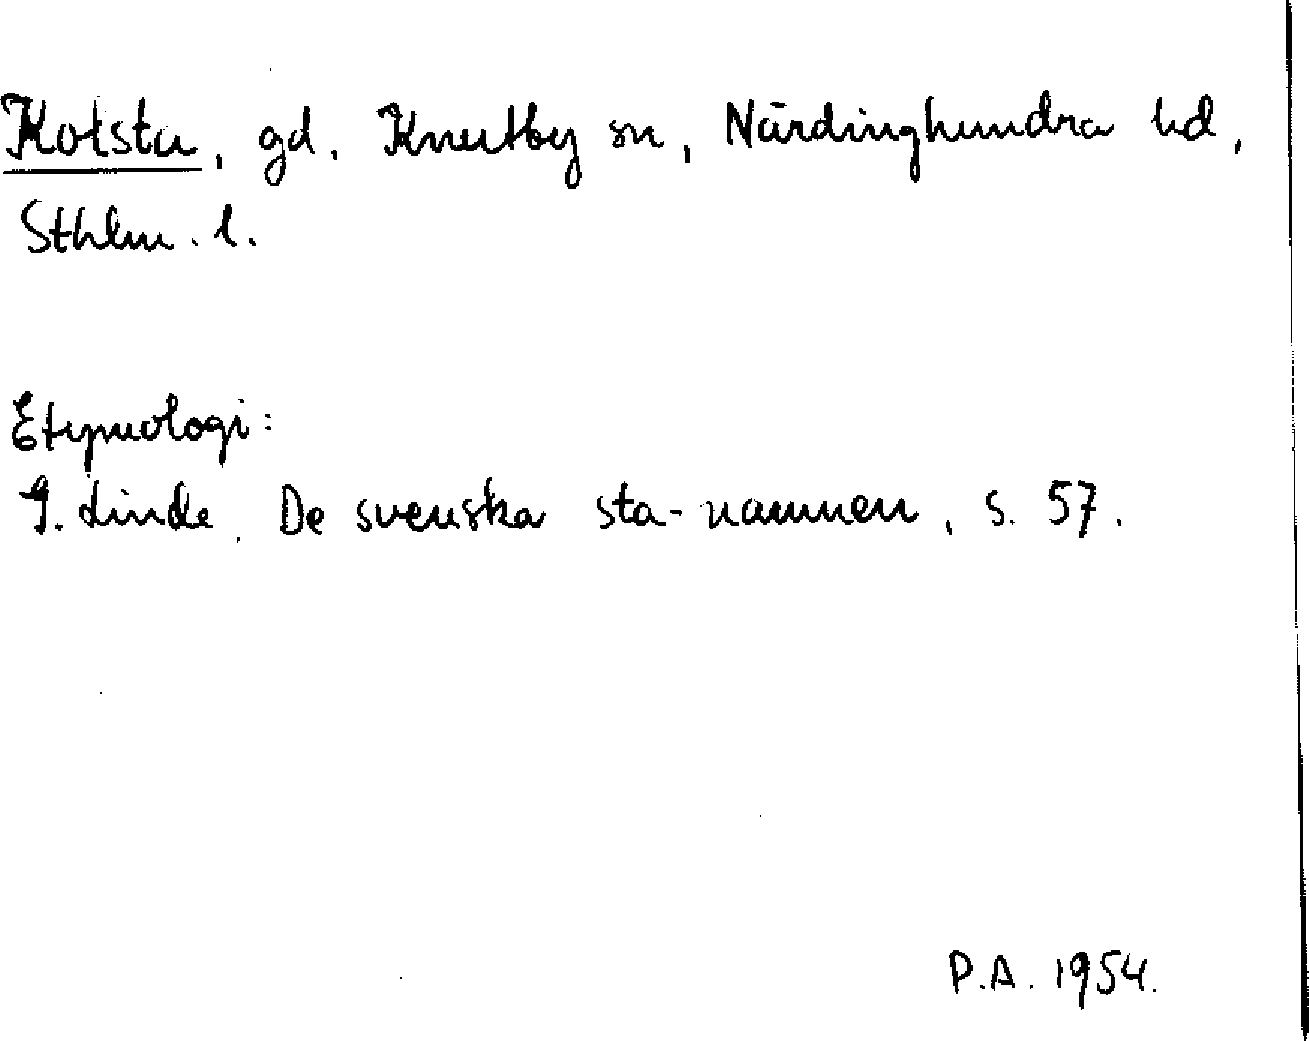 Kotsta, gd, Knutby sn, Närdinghundra hd,
Sthlm. l.
Etymologi:
G. Linde, De svenska sta-namnen, s. 57.
P.A. 1954.